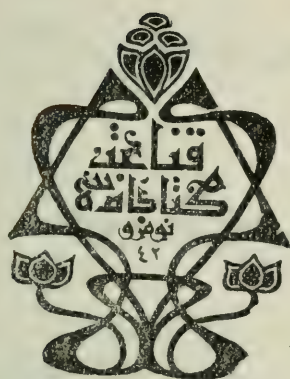 قناعت
كتابخانه سى
نومرو
٤٢